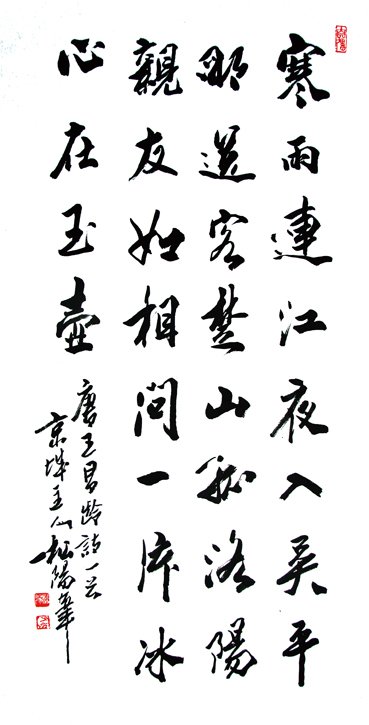 寒雨連江夜入吴平
明送客楚山孤洛陽
親友如相問一片冰
心在玉壺
唐王昌龄詩一首
京城主人松陽